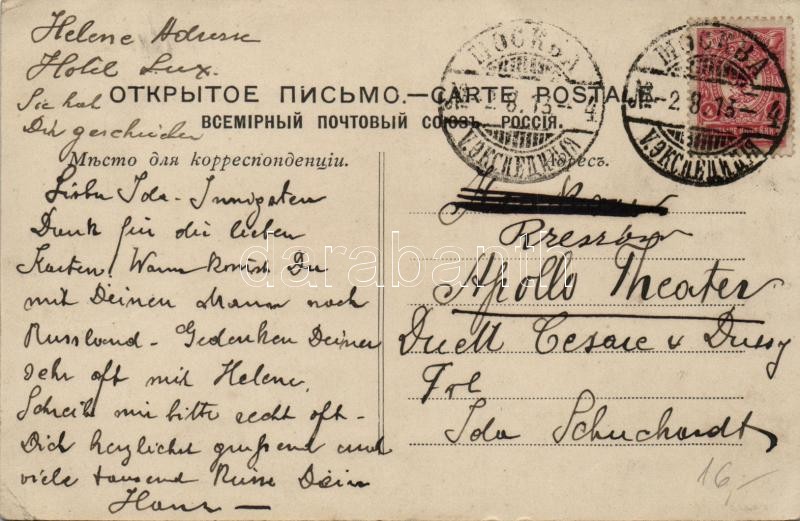 Helene Adresse
Hotel Lux.
Sie hat
Dir geschrieben
ОТКРЫТОЕ ПИСЬМО.—CARTE POSTALE
ВСЕМІРНЫЙ ПОЧТОВЫЙ СОЮЗЪ. РОССІЯ.
Мѣсто для корреспонденціи.
Адресъ.
МОСКВА
-2.8.13-4
V. ЭКСПЕДИЦІЯ
МОСКВА
-2.8.13-4
V. ЭКСПЕДИЦІЯ
Liebe Ida - Innigsten
Dank für die lieben
Karten. Wann kommst Du
mit Deinen Mann nach
Russland - Gedenken Deiner
sehr oft mit Helene.
Schreib mir bitte recht oft -
Dich herzlichst grüssend und
viele tausend Küsse Dein
Hans -
Rzeszów
Apollo Theater
Duett Cesare & Dussy
Frl
Ida Schuchardt
16,-
darabanth